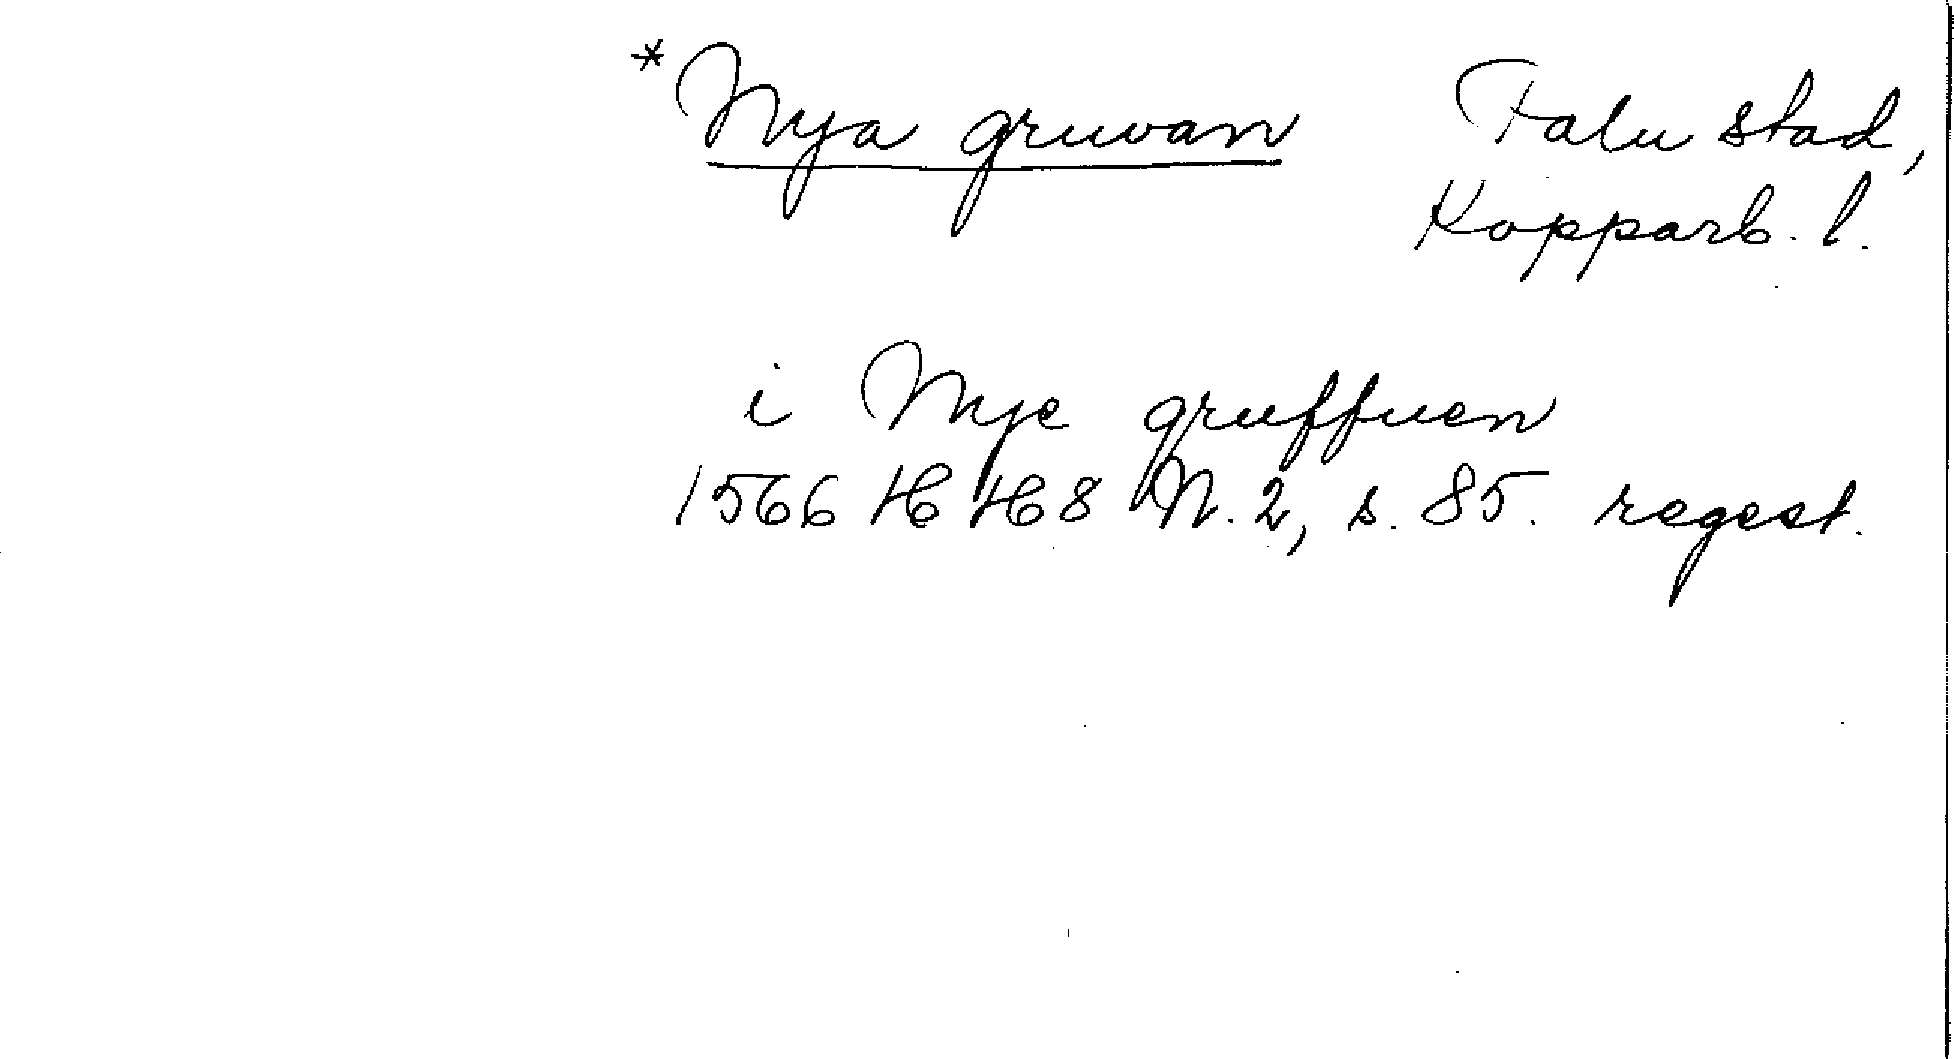 *Nya gruvan Falu stad,
Kopparb. l.
i Nye gruffuen
1566 HH 8 N. 2, s. 85. regest.